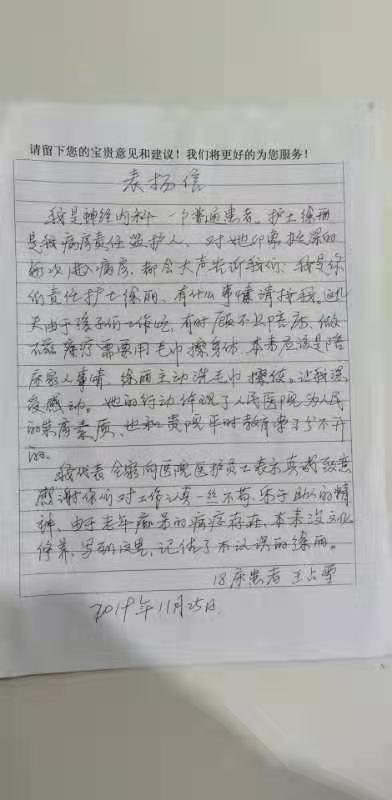 请留下您的宝贵意见和建议！我们将更好的为您服务！
表扬信
我是神经内科一一个普通患者。护士徐丽
是我病房责任监护人、对她印象较深的
每次进入病房，都会大声告诉我们：我是你
们责任护士徐丽、有什么事情请按铃。这几
天由于孩子们工作忙，有时顾不上陪床，做
不疗需要用毛巾擦身体，本来应该是陪
床家人事情，徐丽主动洗毛巾擦使。让我深
受感动。她的行动体现了人民医院为人民
的崇高素质、也和贵院平时教育牵分不开
的。
我代表全家向医院医护员士表示真诚致意
感谢你们对工作认真一丝不苟、乐于助人的精
神、由于老年痴呆的病症存在、本来没文化
修养，写到这里，记住了不认识的徐丽。
18床患者 王占
2019年11月25日